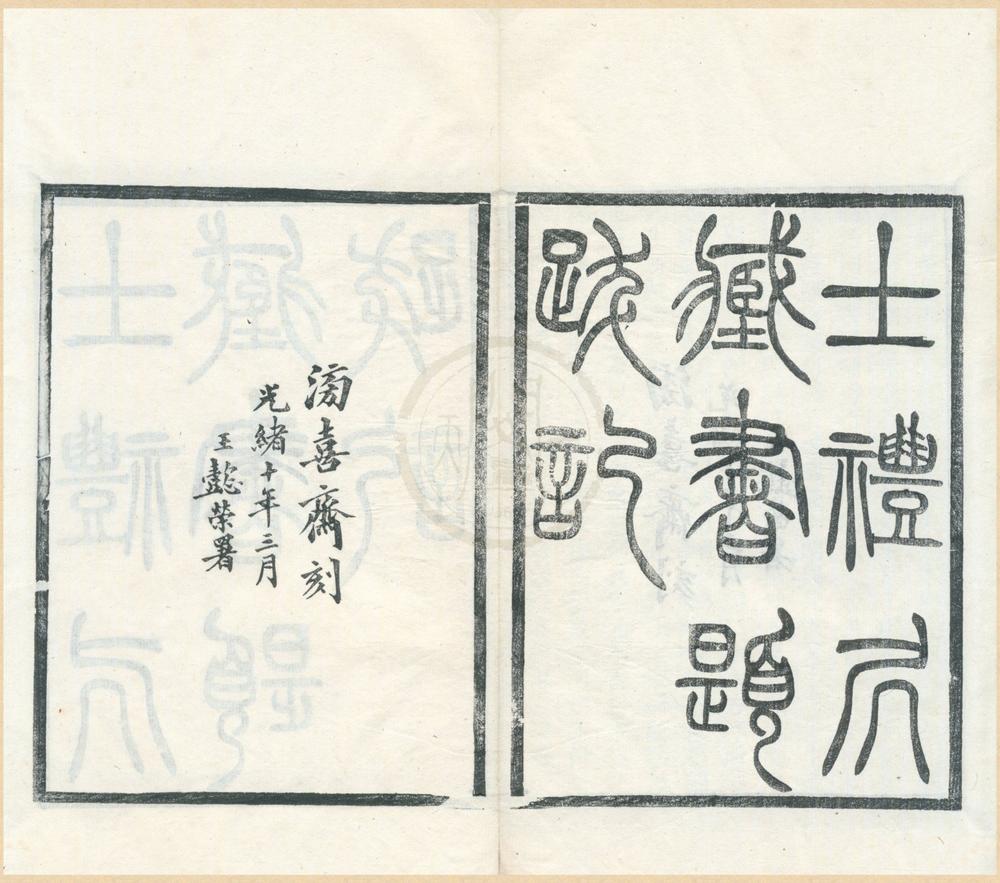 士禮凥
藏書題
跋記
滂喜齋刻
光緒十年三月
王懿榮署